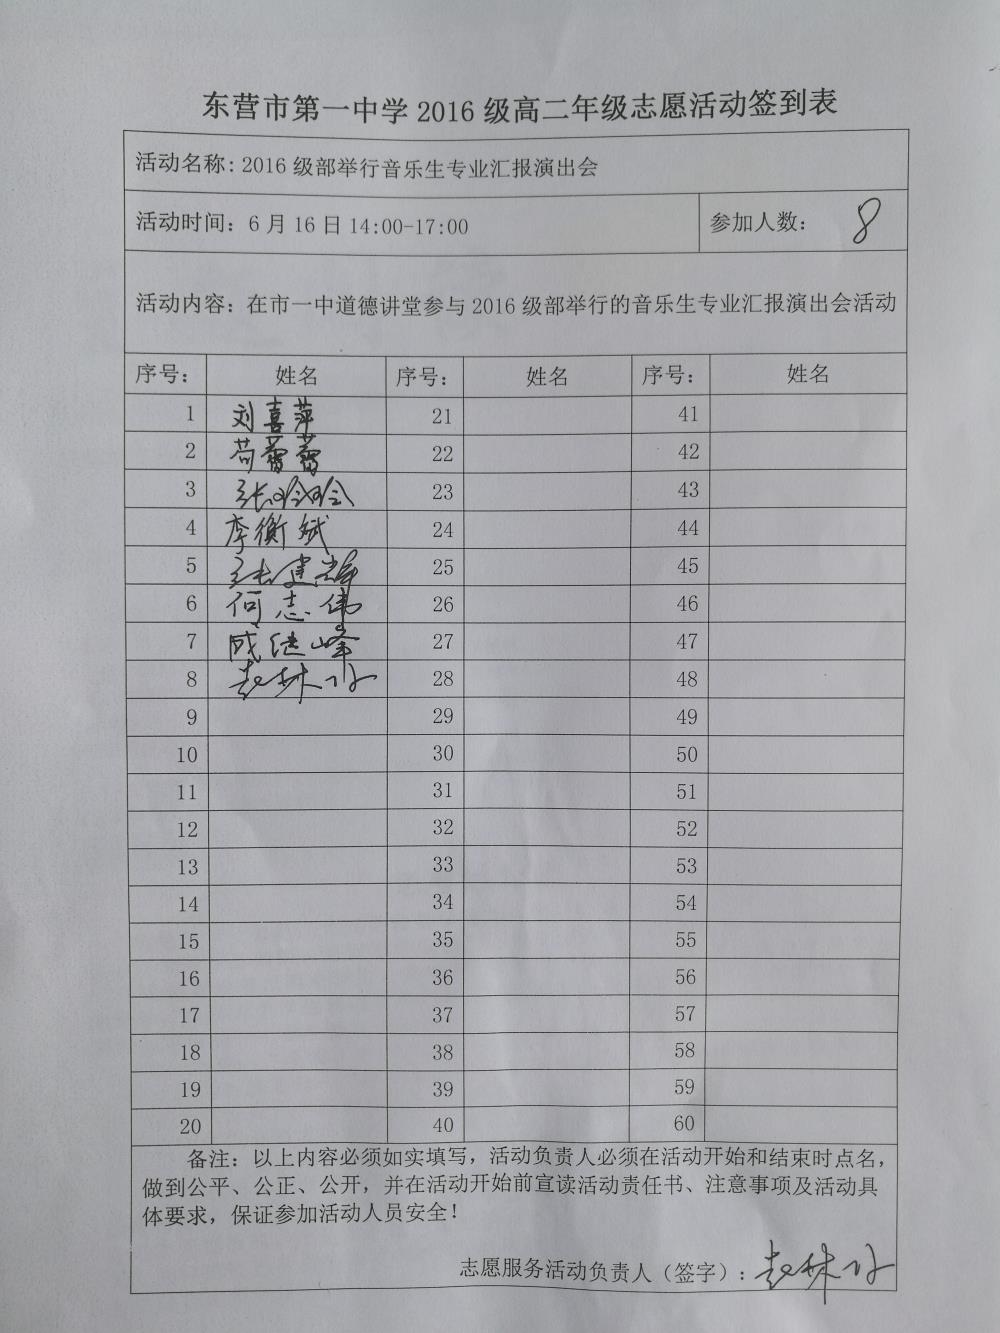 东营市第一中学 2016 级高二年级志愿活动签到表
活动名称: 2016 级部举行音乐生专业汇报演出会
活动时间: 6 月 16 日 14:00-17:00 参加人数: 8
活动内容: 在市一中道德讲堂参与 2016 级部举行的音乐生专业汇报演出会活动
序号: 姓名 序号: 姓名 序号: 姓名
1 刘喜萍 21 41
2 苟蕾蕾 22 42
3 张玲玲 23 43
4 李衡斌 24 44
5 张建辉 25 45
6 何志伟 26 46
7 成继峰 27 47
8 赵林 28 48
9 29 49
10 30 50
11 31 51
12 32 52
13 33 53
14 34 54
15 35 55
16 36 56
17 37 57
18 38 58
19 39 59
20 40 60
备注: 以上内容必须如实填写, 活动负责人必须在活动开始和结束时点名,
做到公平、公正、公开, 并在活动开始前宣读活动责任书、注意事项及活动具
体要求, 保证参加活动人员安全!
志愿服务活动负责人 (签字): 赵林